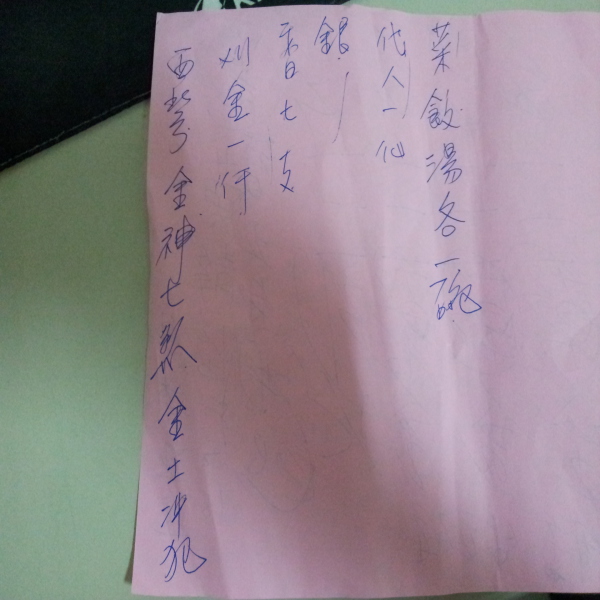 西北方金神七煞金土冲犯
刈金一仟
香七支
銀
代人一仙
菜飯湯各一碗